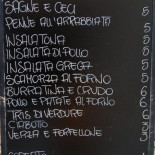 SAGNE E CECI 5
PENNE ALL'ARRABBIATA 5
INSALATONA 5
INSALATA DI POLLO 5
INSALATA GREGA 5
SCAMORZA AL FORNO 5
BURRATINA E CRUDO 6
POLLO E PATATE AL FORNO 6
TRIS DI VERDURE 5
CAPUTO 5
VERZA E PORFELLONE 5